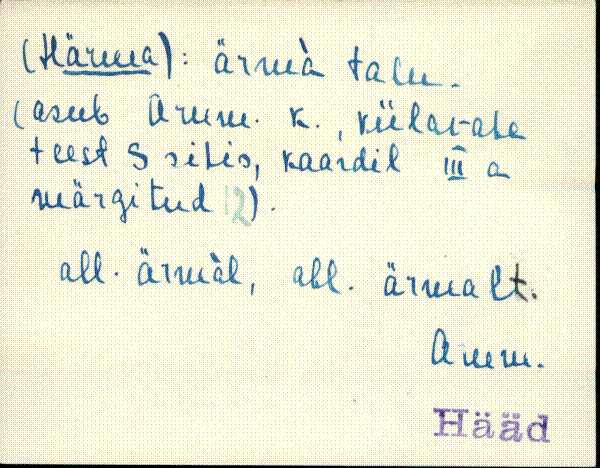 (Härma): ärmà talu.
(asub Arum. k., külavahe
teest S sihis, kaardil III a
märgitud 12).
all. ärmàl, abl. ärmalt.
Arum.
Hääd